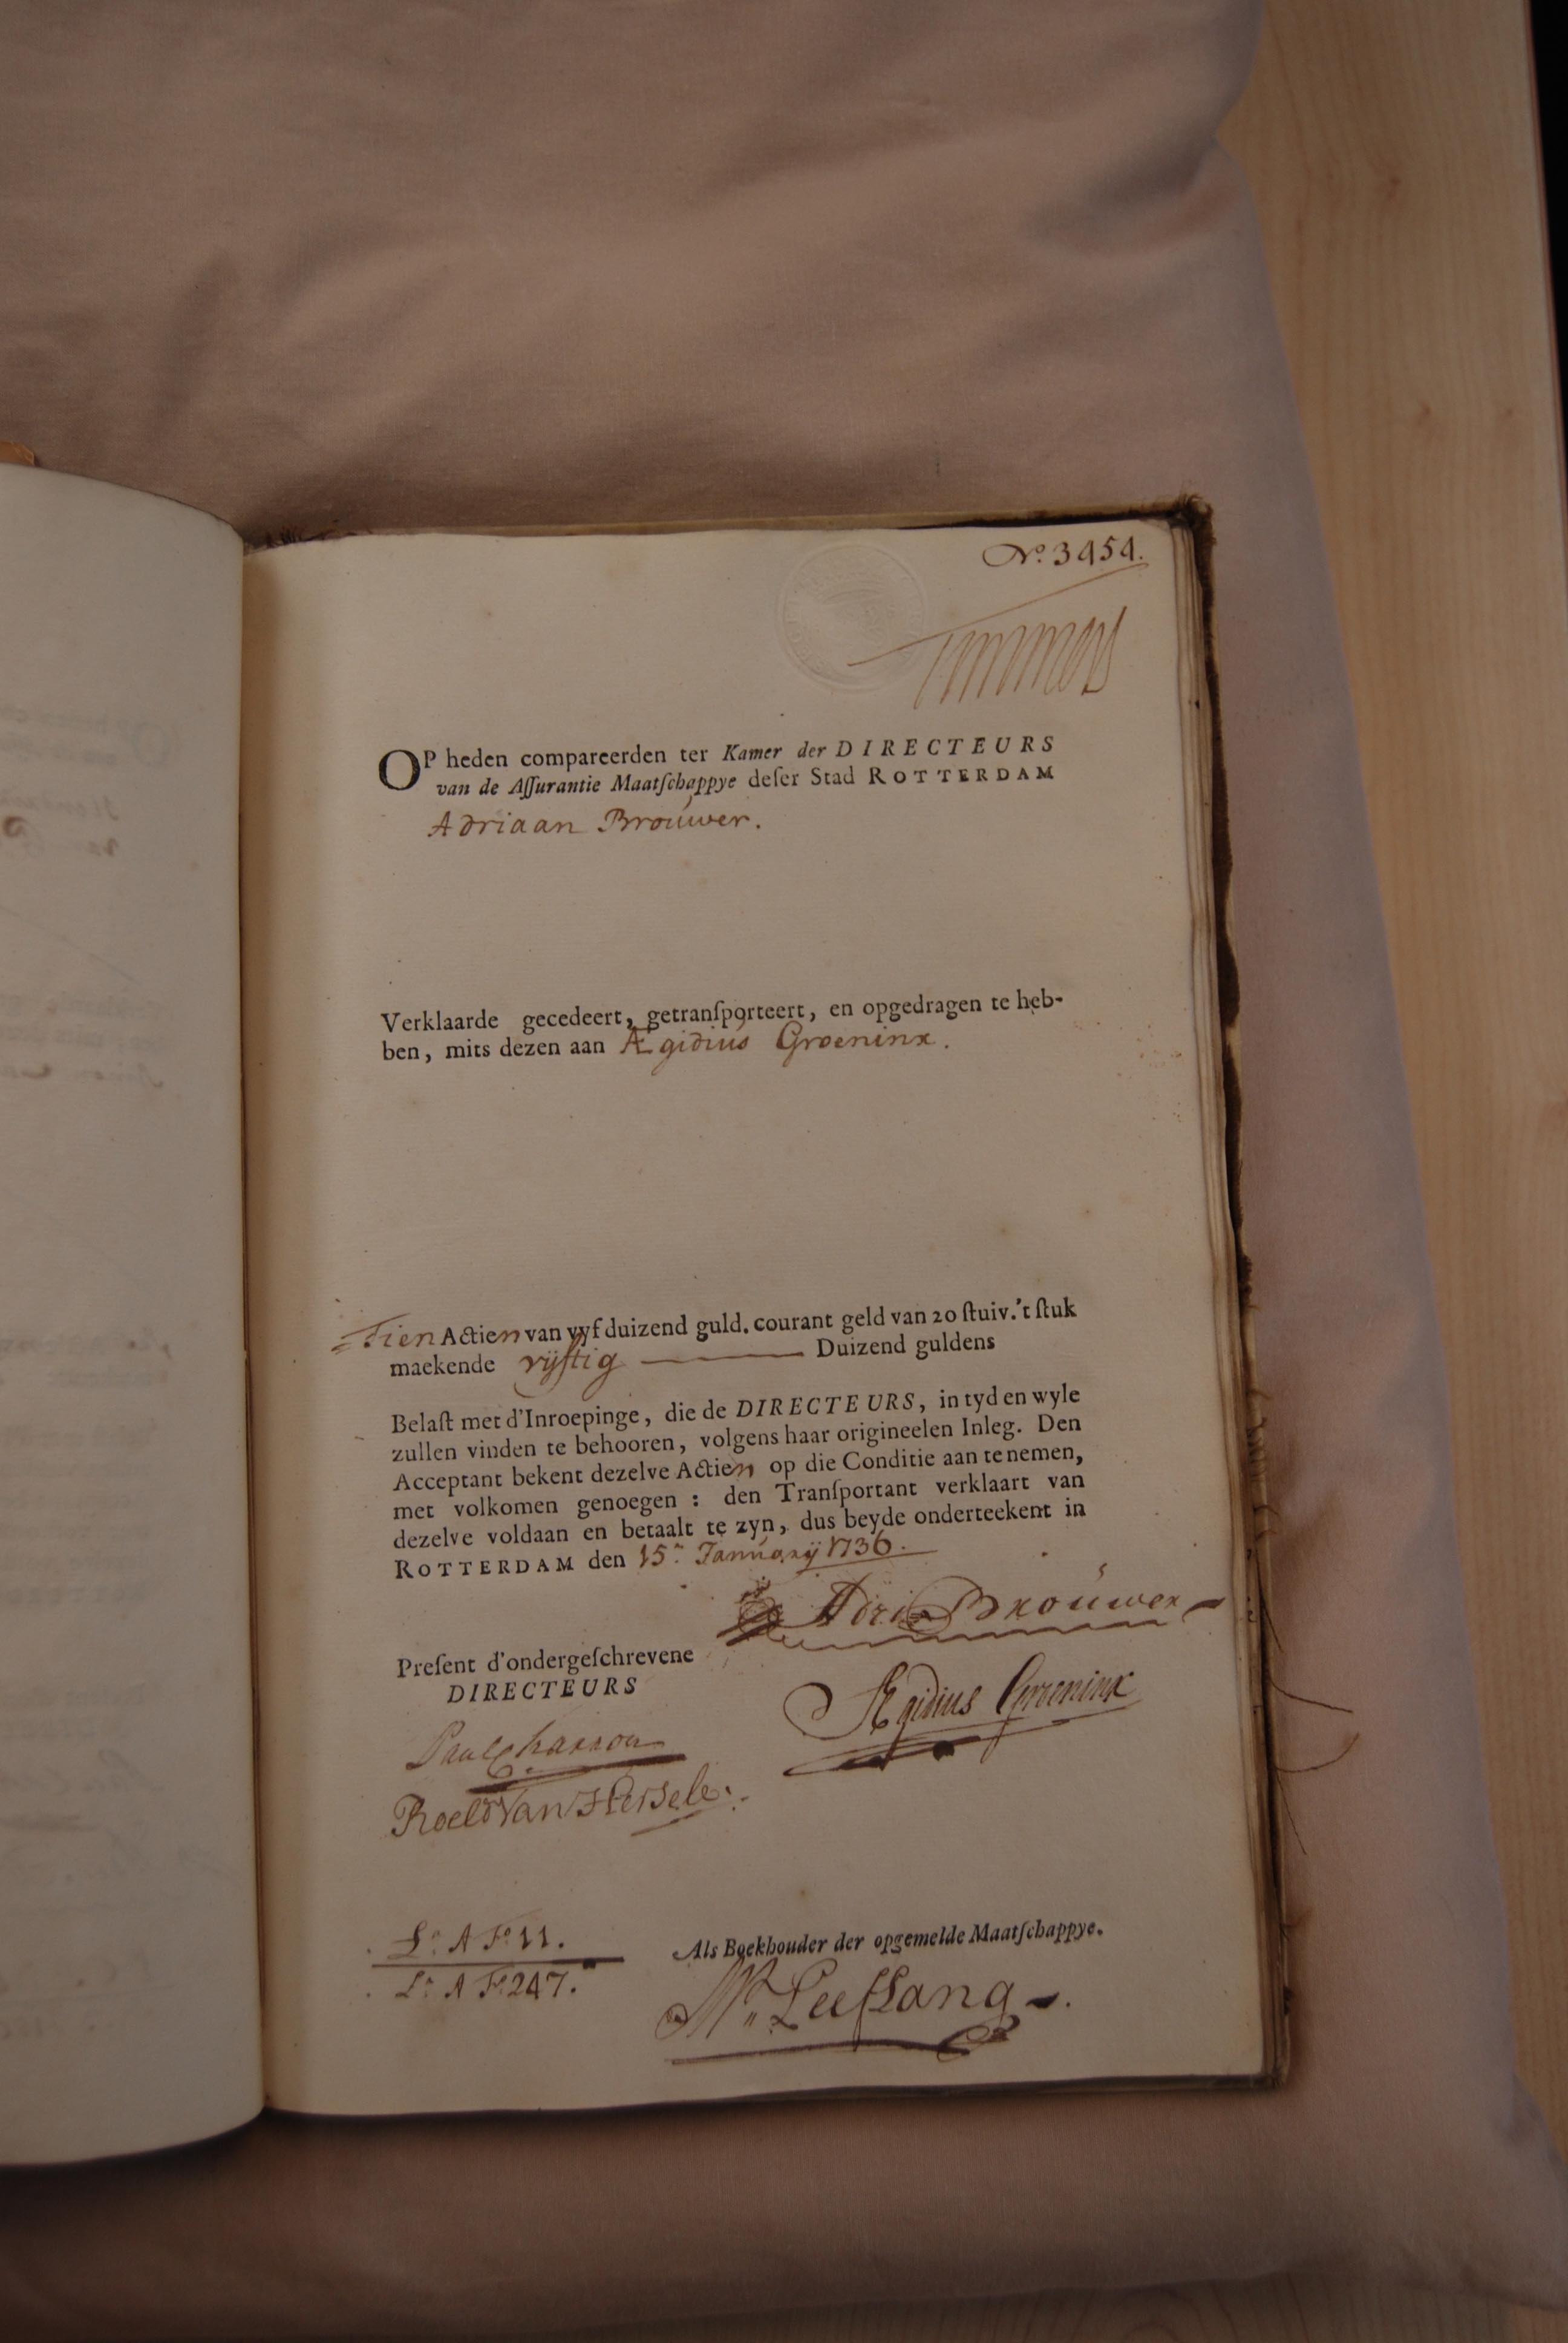 No. 3454.
Timmers
OP heden compareerden ter Kamer der DIRECTEURS
van de Aſſurantie Maatſchappye deſer Stad ROTTERDAM
Adriaan Brouwer.
Verklaarde gecedeert, getranſporteert, en opgedragen te heb-
ben, mits dezen aan Ægidius Groeninx.
Tien Actien van vyf duizend guld. courant geld van 20 ſtuiv. 't ſtuk
maekende vijftig Duizend guldens
Belaſt met d'Inroepinge, die de DIRECTEURS, in tyd en wyle
zullen vinden te behooren, volgens haar origineelen Inleg. Den
Acceptant bekent dezelve Actien op die Conditie aan te nemen,
met volkomen genoegen : den Tranſportant verklaart van
dezelve voldaan en betaalt te zyn, dus beyde onderteekent in
ROTTERDAM den 15n. Januarij 1736.
Adri Brouwer
Preſent d'ondergeſchrevene
DIRECTEURS
Ægidius Groeninx
Paul Chasson
Roelo Van Hersele.
Lr. A Fo. 11.
Lr. A Fo. 247.
Als Boekhouder der opgemelde Maatſchappye.
Mr. Leeſlang